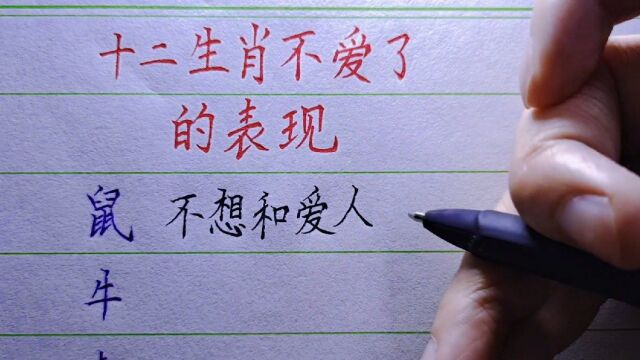 十二生肖不爱了
的表现
鼠 不想和爱人
牛